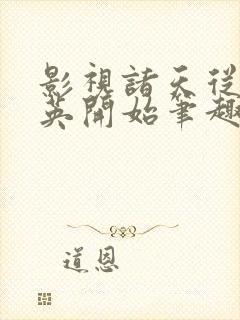 影視諸天從
英開始筆趣
道恩